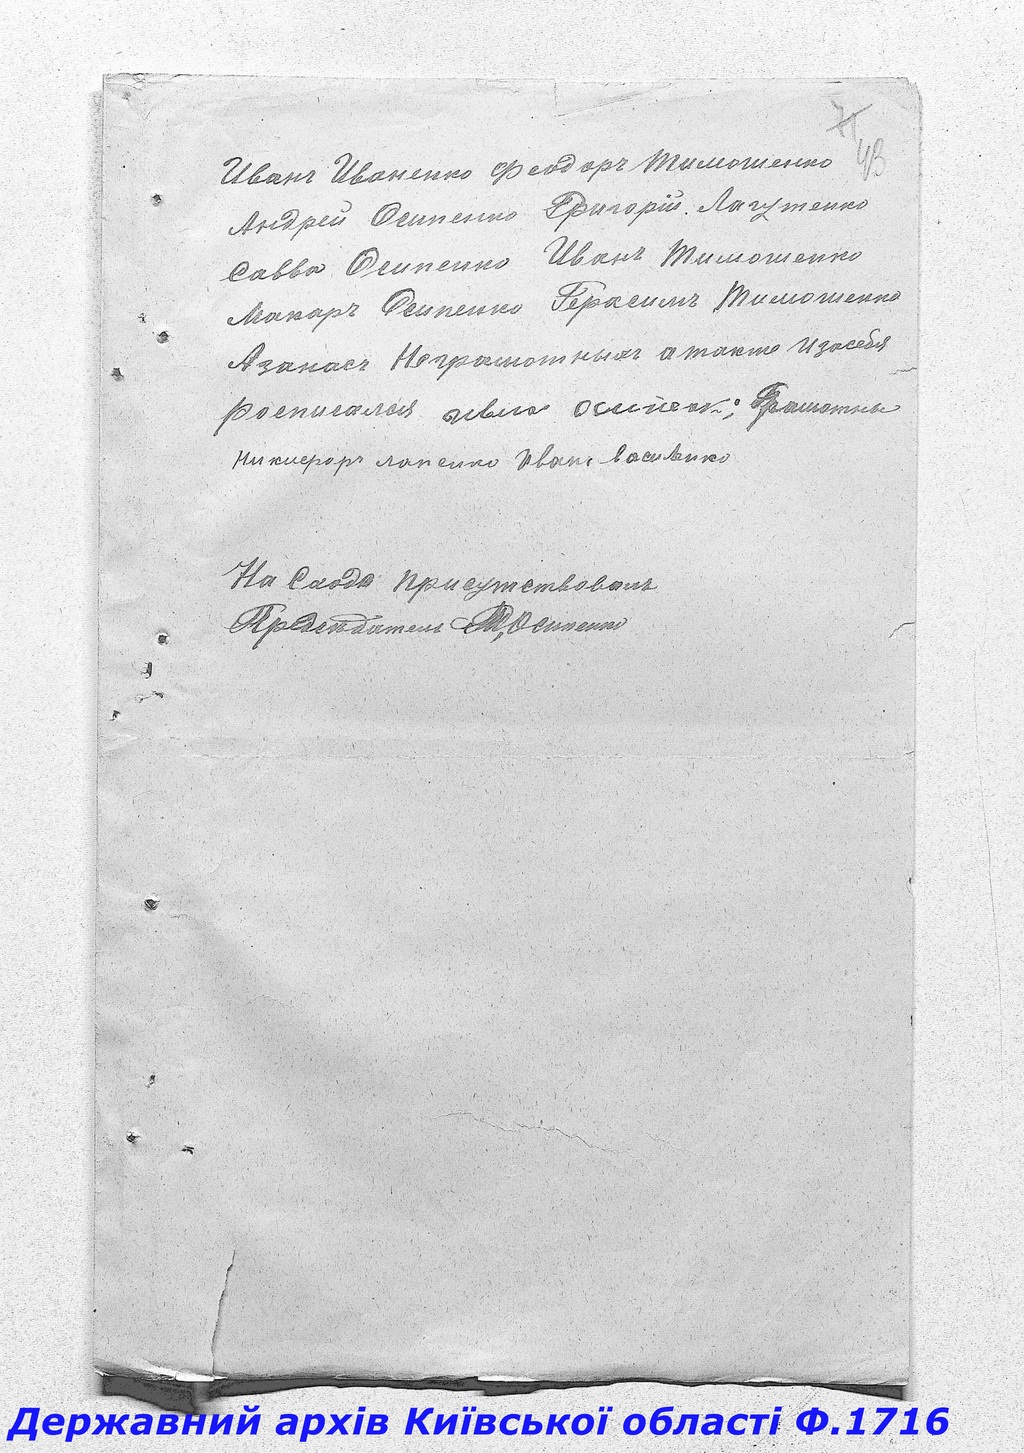 71
43
Иванъ Иваненко Феодоръ Тимошенко
Андрей Осипенко Григорій. Лагутенко
Савва Осипенко Иванъ Тимошенко
Макаръ Осипенко Герасимъ Тимошенко
Азанасъ Неграмотныхъ а также и засебя
Росписался Осипенк; Грамотны
Никифоръ лапенко Иванъ василенко
На Сходе присутствовалъ
Председатель Осипенко
Державний архів Київської області Ф.1716